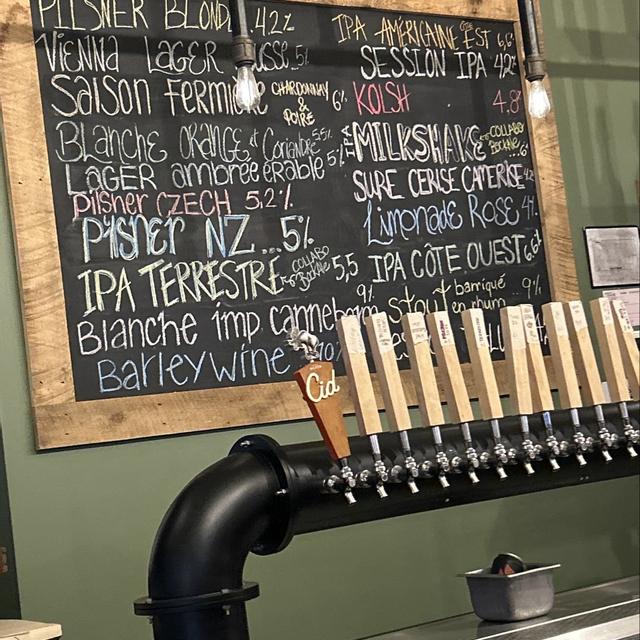 PILSNER BLONDE 4.2%
VIENNA LAGER
SAISON FERMIÈRE CHARDONNAY & POIRE 6%
BLANCHE ORANGE et Coriandre 5.5%
LAGER ambrée érable 5%
Pilsner CZECH 5.2%
Pilsner NZ... 5%
IPA TERRESTRE COLLABO BockAle 5,5
Blanche imp canneberge 9%
Barleywine 10%
IPA AMÉRICAINE CÔTE EST 6,6
SESSION IPA 4.2%
KOLSH 4.8%
IPA MILKSHAKE COLLABO BockAle ...6
SURE CERISE CAMERISE
Limonade Rose 4%
IPA CÔTE OUEST 6,6
Stout barriqué en rhum ... 9%
Cid